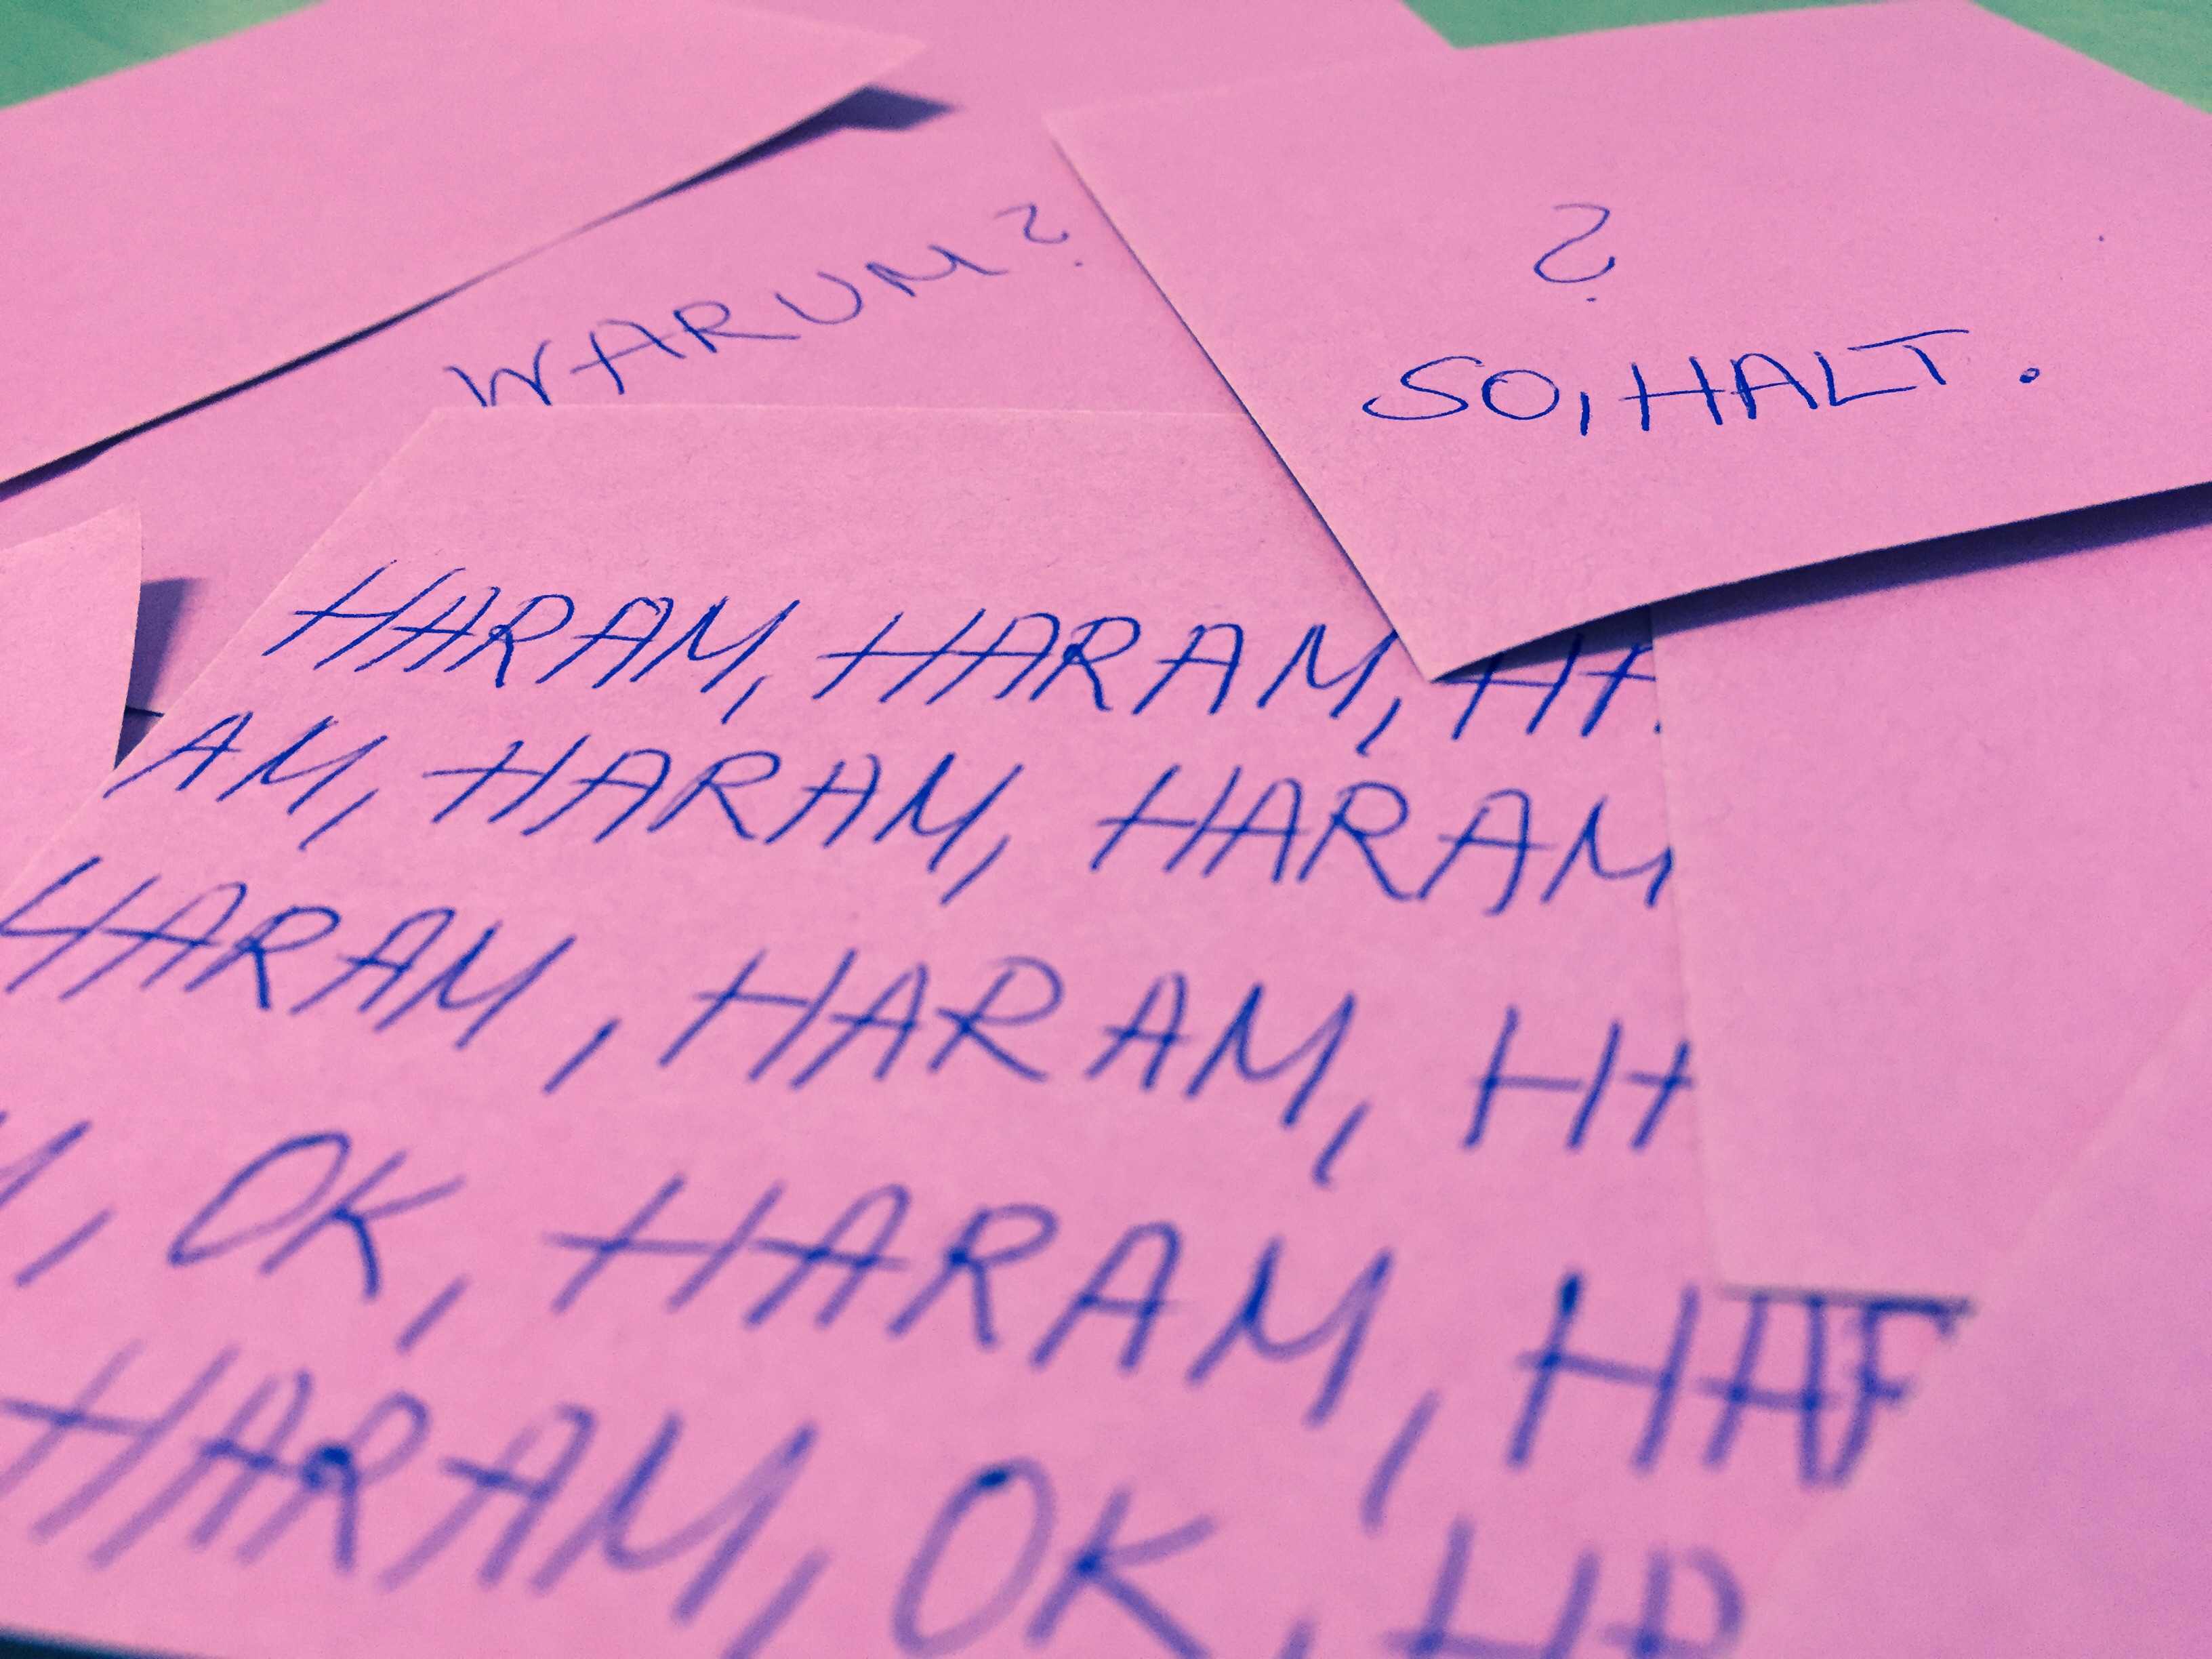 WARUM?
?
SO, HALT.
HARAM, HARAM, HA
AM, HARAM, HARAM
HARAM, HARAM, HA
M, OK, HARAM, HAR
HARAM, OK, HA